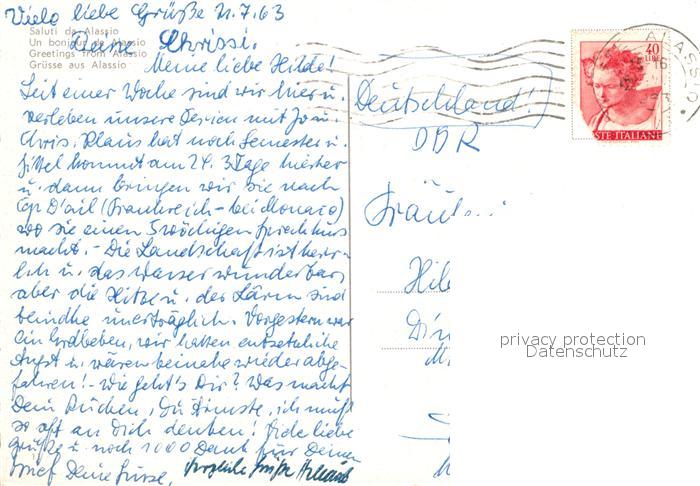 Viele liebe Grüße 21.7.63
Deine Chrissi.
Saluti da Alassio
Un bonjour de Alassio
Greetings from Alassio
Grüsse aus Alassio
Meine liebe Hilde!
Seit einer Woche sind wir hier u.
verleben unsere Ferien mit Jo u.
Chris. Klaus hat noch Semester u.
kommt am 24. 3 Tage hierher
u. dann bringen wir sie nach
Cap D'ail (Frankreich - bei Monaco)
wo sie einen 5 wöchigen Sprachkurs
macht. - Die Landschaft ist herr-
lich u. das Wasser wunderbar,
aber die Hitze u. der Lärm sind
beinahe unerträglich. Vorgestern war
ein Erdbeben, wir hatten entsetzliche
Angst u. wären beinahe wieder abge-
fahren! - Wie geht's Dir? Was macht
Dein Rücken, Du Ärmste, ich muß
so oft an Dich denken! Viele liebe
Grüße u. noch 1000 Dank für Deinen
Brief Deine
Deutschland!
DDR
Fräulein
Hil
ALASSIO
40
LIRE
STE ITALIANE
privacy protection
Datenschutz